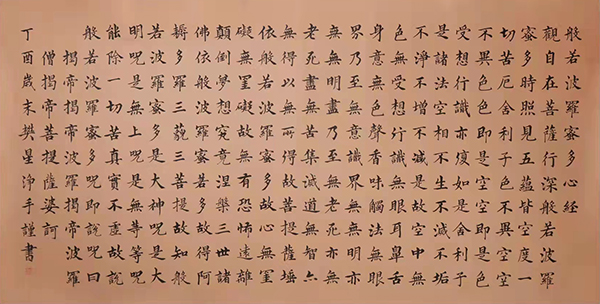 般若波羅蜜多心經
觀自在菩薩行深般若波羅
蜜多時照見五蘊皆空度一
切苦厄舍利子色不異空空
不異色色即是空空即是色
受想行識亦復如是舍利子
是諸法空相不生不滅不垢
不淨不增不減是故空中無
色無受想行識無眼耳鼻舌
身意無色聲香味觸法無眼
界乃至無意識界無無明亦
無無明盡乃至無老死亦無
老死盡無苦集滅道無智亦
無得以無所得故菩提薩埵
依般若波羅蜜多故心無罣
礙無罣礙故無有恐怖遠離
顛倒夢想究竟涅槃三世諸
佛依般若波羅蜜多故得阿
耨多羅三藐三菩提故知般
若波羅蜜多是大神呪是大
明呪是無上呪是無等等呪
能除一切苦真實不虛故說
般若波羅蜜多呪即說呪曰
揭帝揭帝波羅揭帝波羅
僧揭帝菩提薩婆訶
丁酉歲末樊星淨手謹書